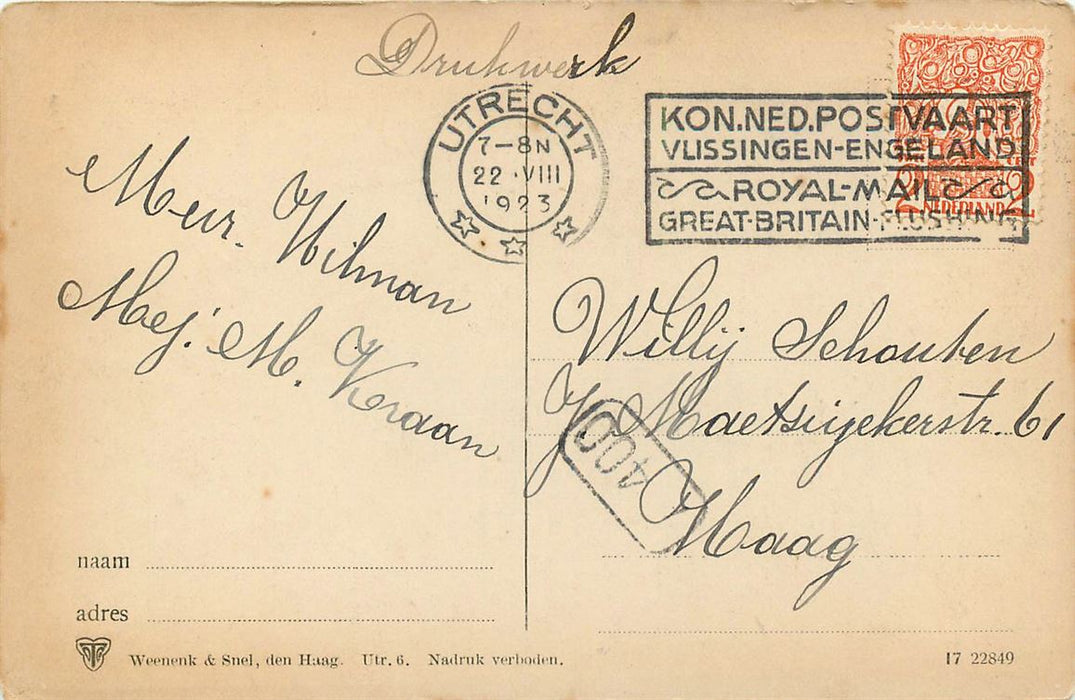 Drukwerk
UTRECHT
7-8N
22·VIII
1923
KON.NED.POSTVAART
VLISSINGEN-ENGELAND
ROYAL-MAIL
GREAT-BRITAIN-FLUSHING
2 2
NEDERLAND
Mevr. Wilman
Mej. M. Kraan
Willij Schouten
J. Maetsuyekerstr. 61
Haag
400
naam
adres
Weenenk & Snel, den Haag. Utr. 6. Nadruk verboden.
17 22849